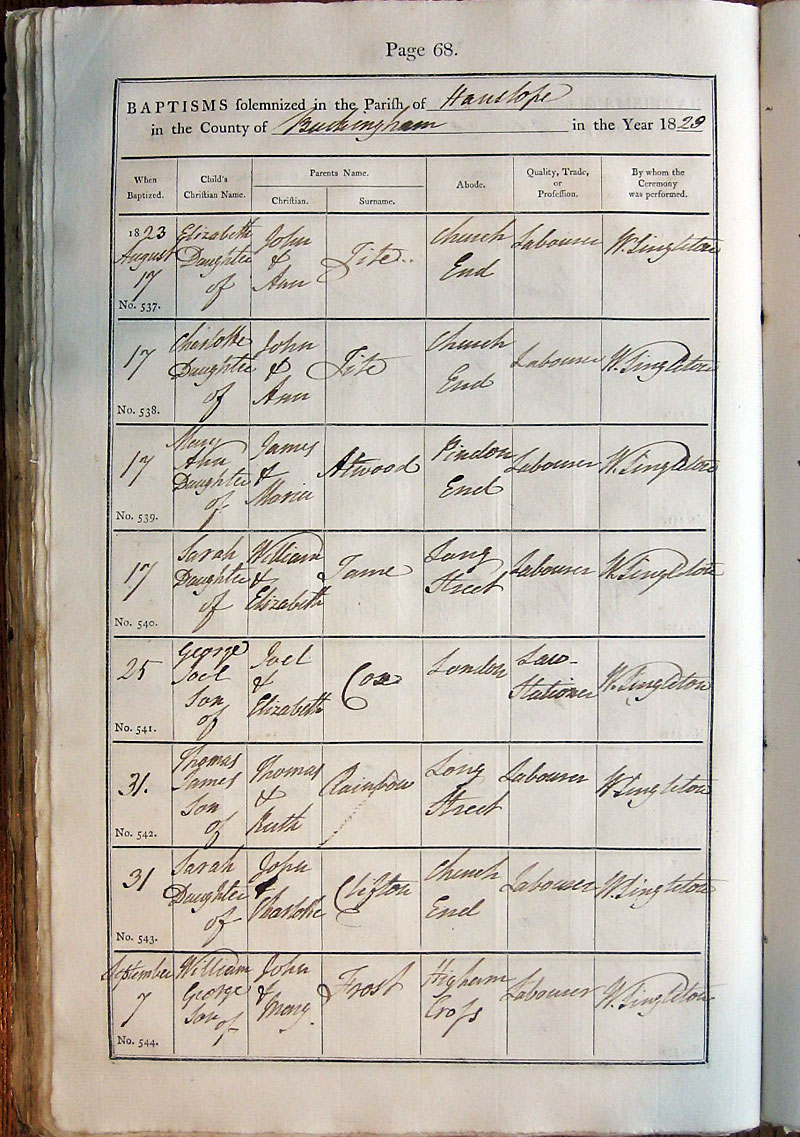 Page 68.
BAPTISMS solemnized in the Parish of Hanslope
in the County of Buckingham in the Year 1823
When Baptized.
Child's Christian Name.
Parents Name.
Christian.
Surname.
Abode.
Quality, Trade, or Profession.
By whom the Ceremony was performed.
1823 August 17 No. 537.
Elizabeth Daughter of
John & Ann
Tite
Church End
Labourer
W. Singleton
17 No. 538.
Charlotte Daughter of
John & Ann
Tite
Church End
Labourer
W. Singleton
17 No. 539.
Mary Ann Daughter of
James & Maria
Atwood
Pindon End
Labourer
W. Singleton
17 No. 540.
Sarah Daughter of
William & Elizabeth
Tame
Long Street
Labourer
W. Singleton
25 No. 541.
George Joel Son of
Joel & Elizabeth
Cox
London
Law-Stationer
W. Singleton
31. No. 542.
Thomas James Son of
Thomas & Ruth
Rainbow
Long Street
Labourer
W. Singleton
31 No. 543.
Sarah Daughter of
John & Charlotte
Clifton
Church End
Labourer
W. Singleton
September 7 No. 544.
William George Son of
John & Mary.
Frost
Higham Cross
Labourer
W. Singleton